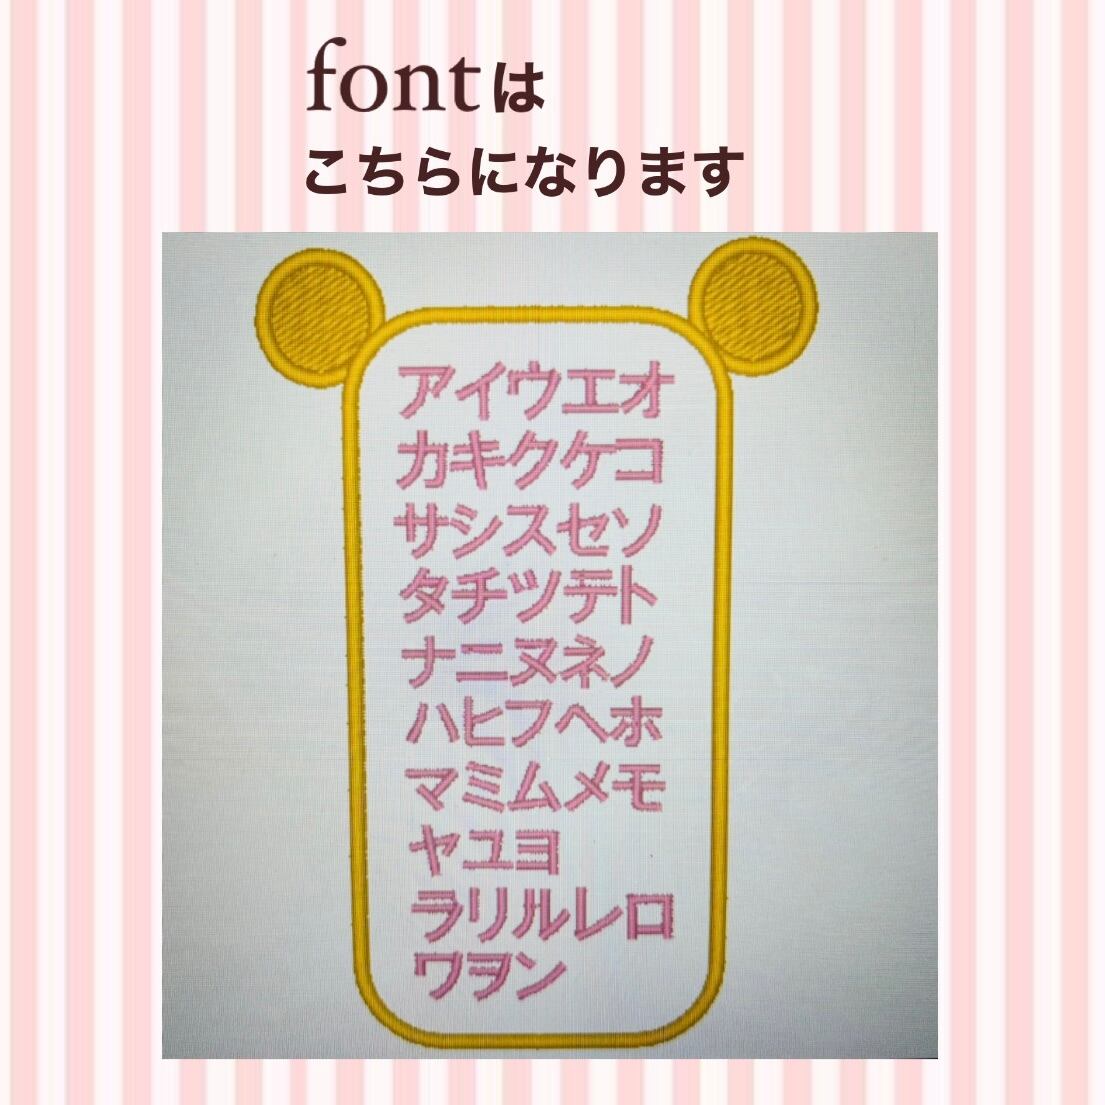 fontは
こちらになります
アイウエオ
カキクケコ
サシスセソ
タチツテト
ナニヌネノ
ハヒフヘホ
マミムメモ
ヤユヨ
ラリルレロ
ワヲン